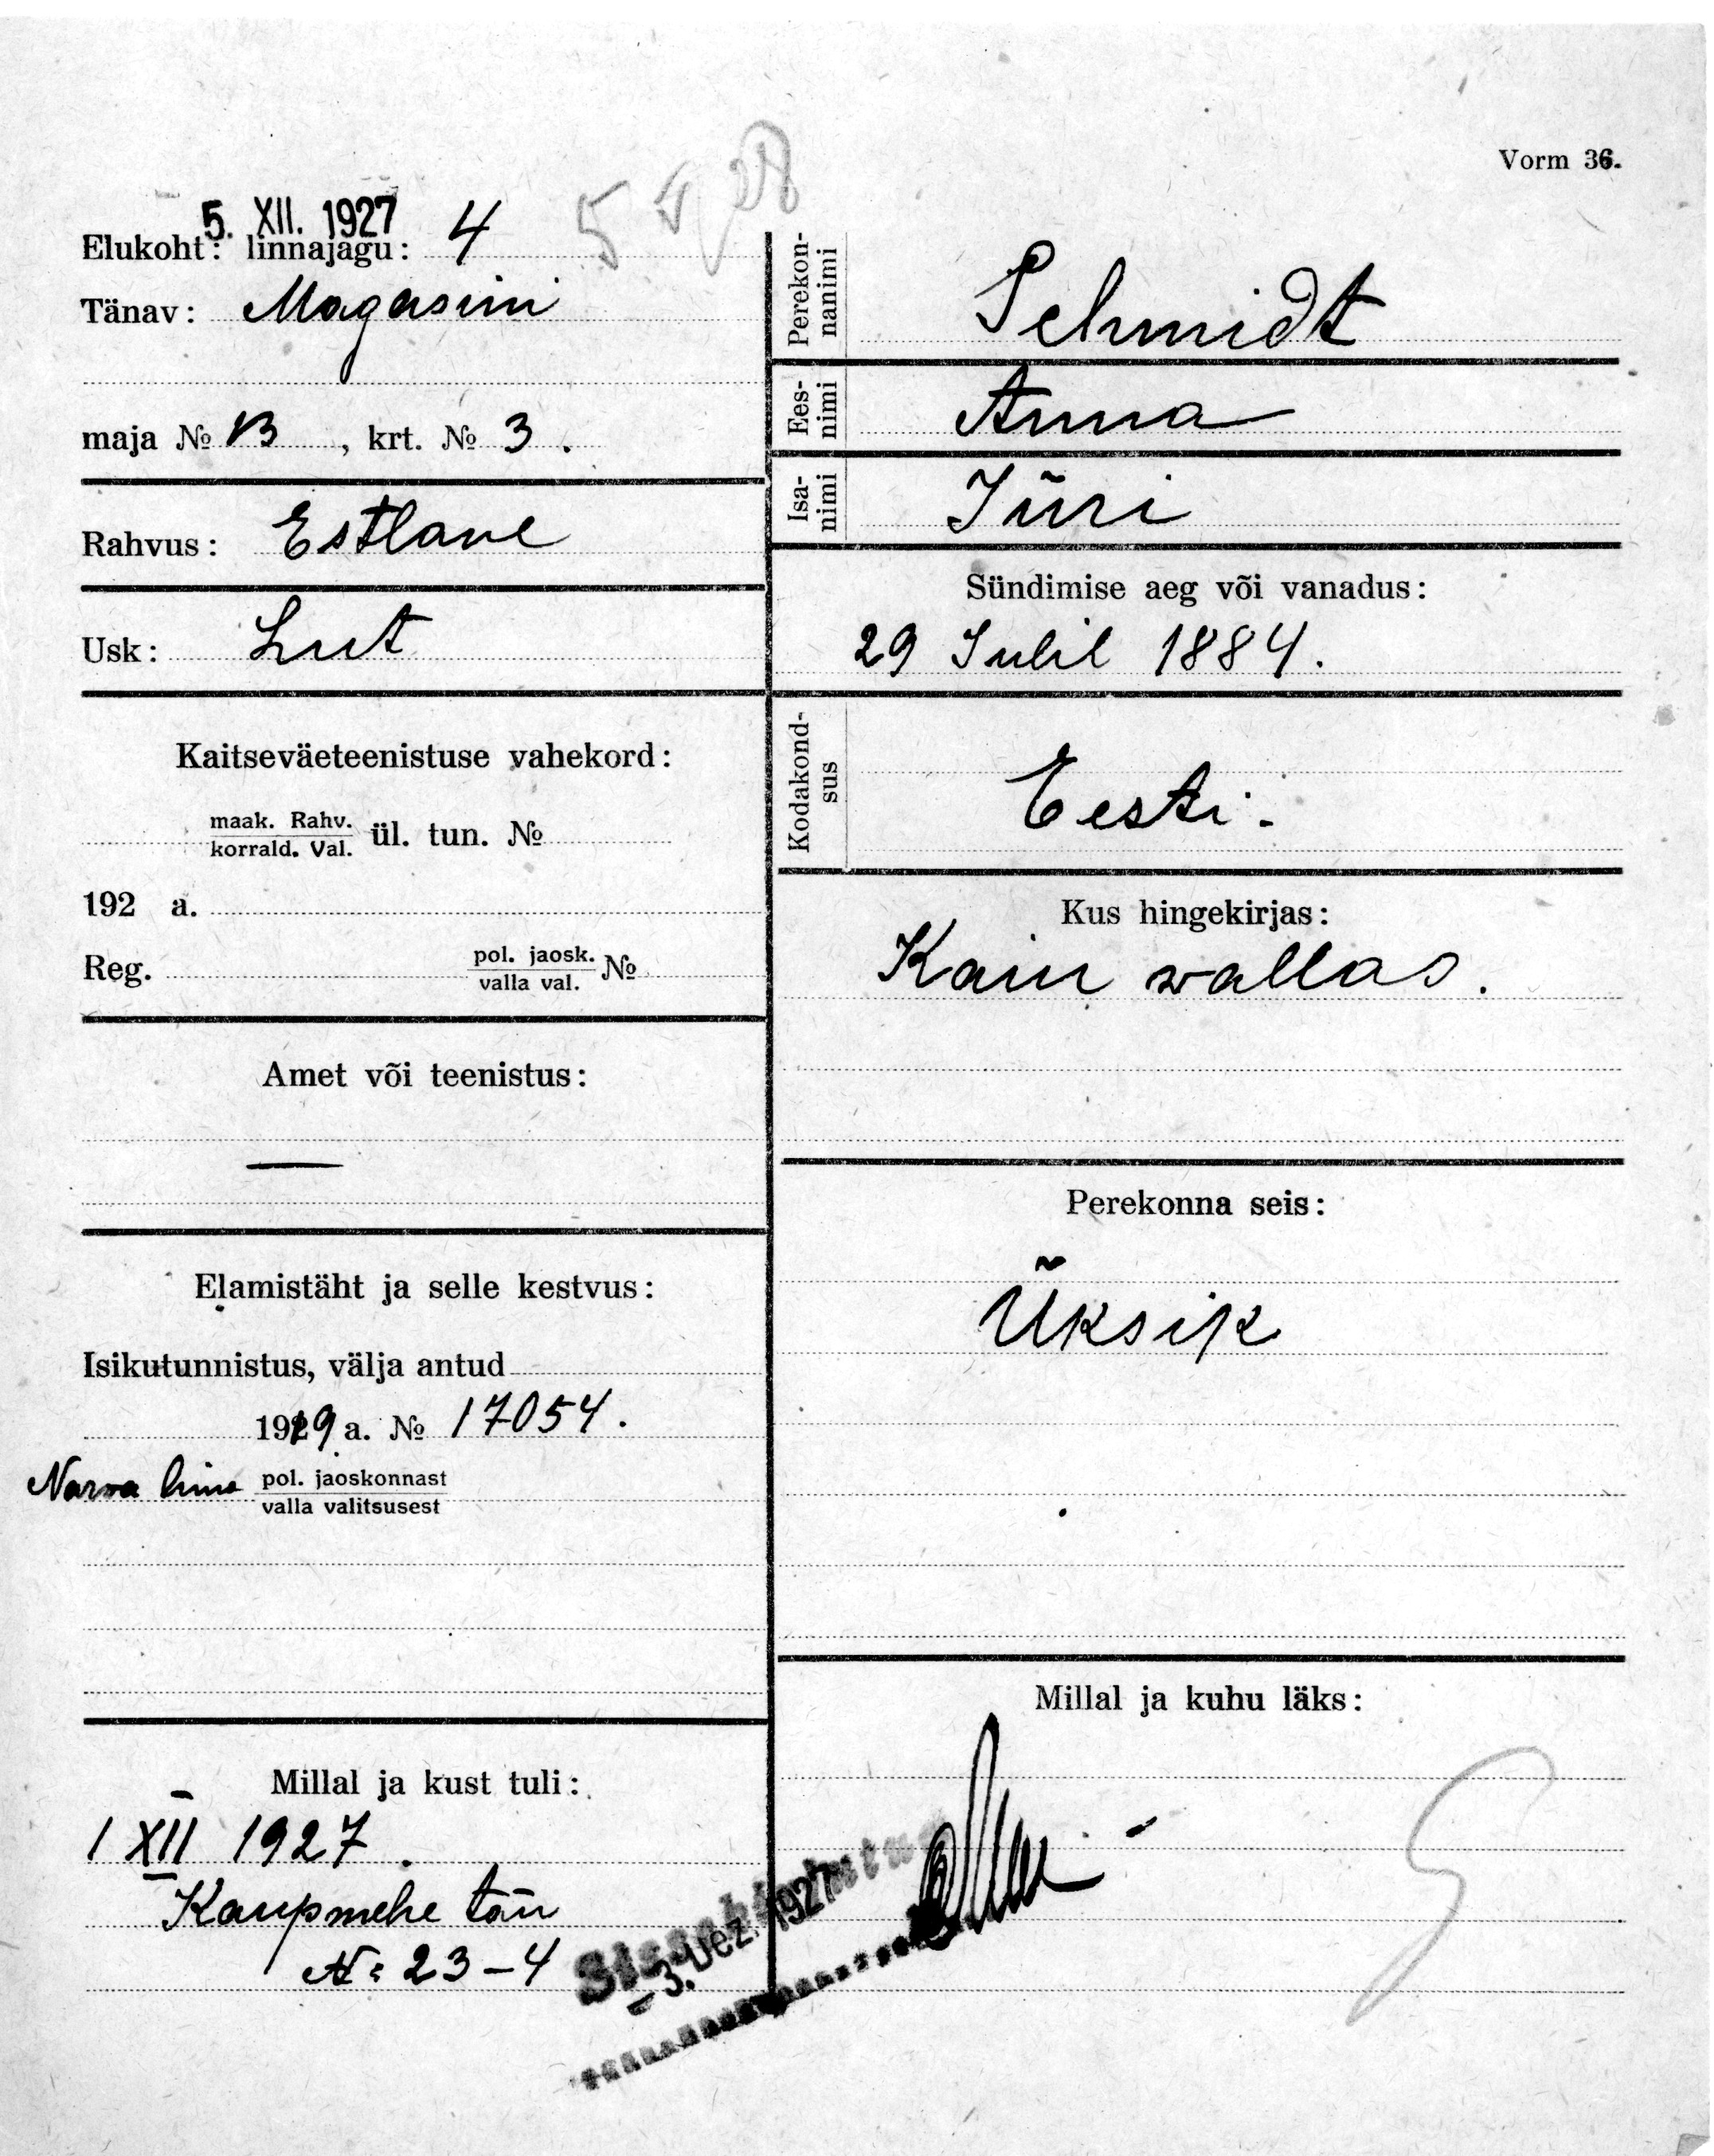 Vorm 36.
5. XII. 1927
Elukoht: linnajagu: 4
Tänav: Magasini
maja № 13, krt. № 3.
Rahvus: Estlane
Usk: Lut
Kaitseväeteenistuse vahekord:
maak. Rahv.
korrald. Val. ül. tun. №
192 a.
Reg. pol. jaosk. №
valla val.
Amet või teenistus:
—
Elamistäht ja selle kestvus:
Isikutunnistus, välja antud
1919 a. № 17054.
Narva linna pol. jaoskonnast
valla valitsusest
Millal ja kust tuli:
1 XII 1927.
Kaupmehe tän
N: 23-4
Perekon-
nanimi
Schmidt
Ees-
nimi
Anna
Isa-
nimi
Jüri
Sündimise aeg või vanadus:
29 Julil 1884.
Kodakond-
sus
Eesti.
Kus hingekirjas:
wallas.
Perekonna seis:
Üksik
Millal ja kuhu läks:
-3. Dez. 1927